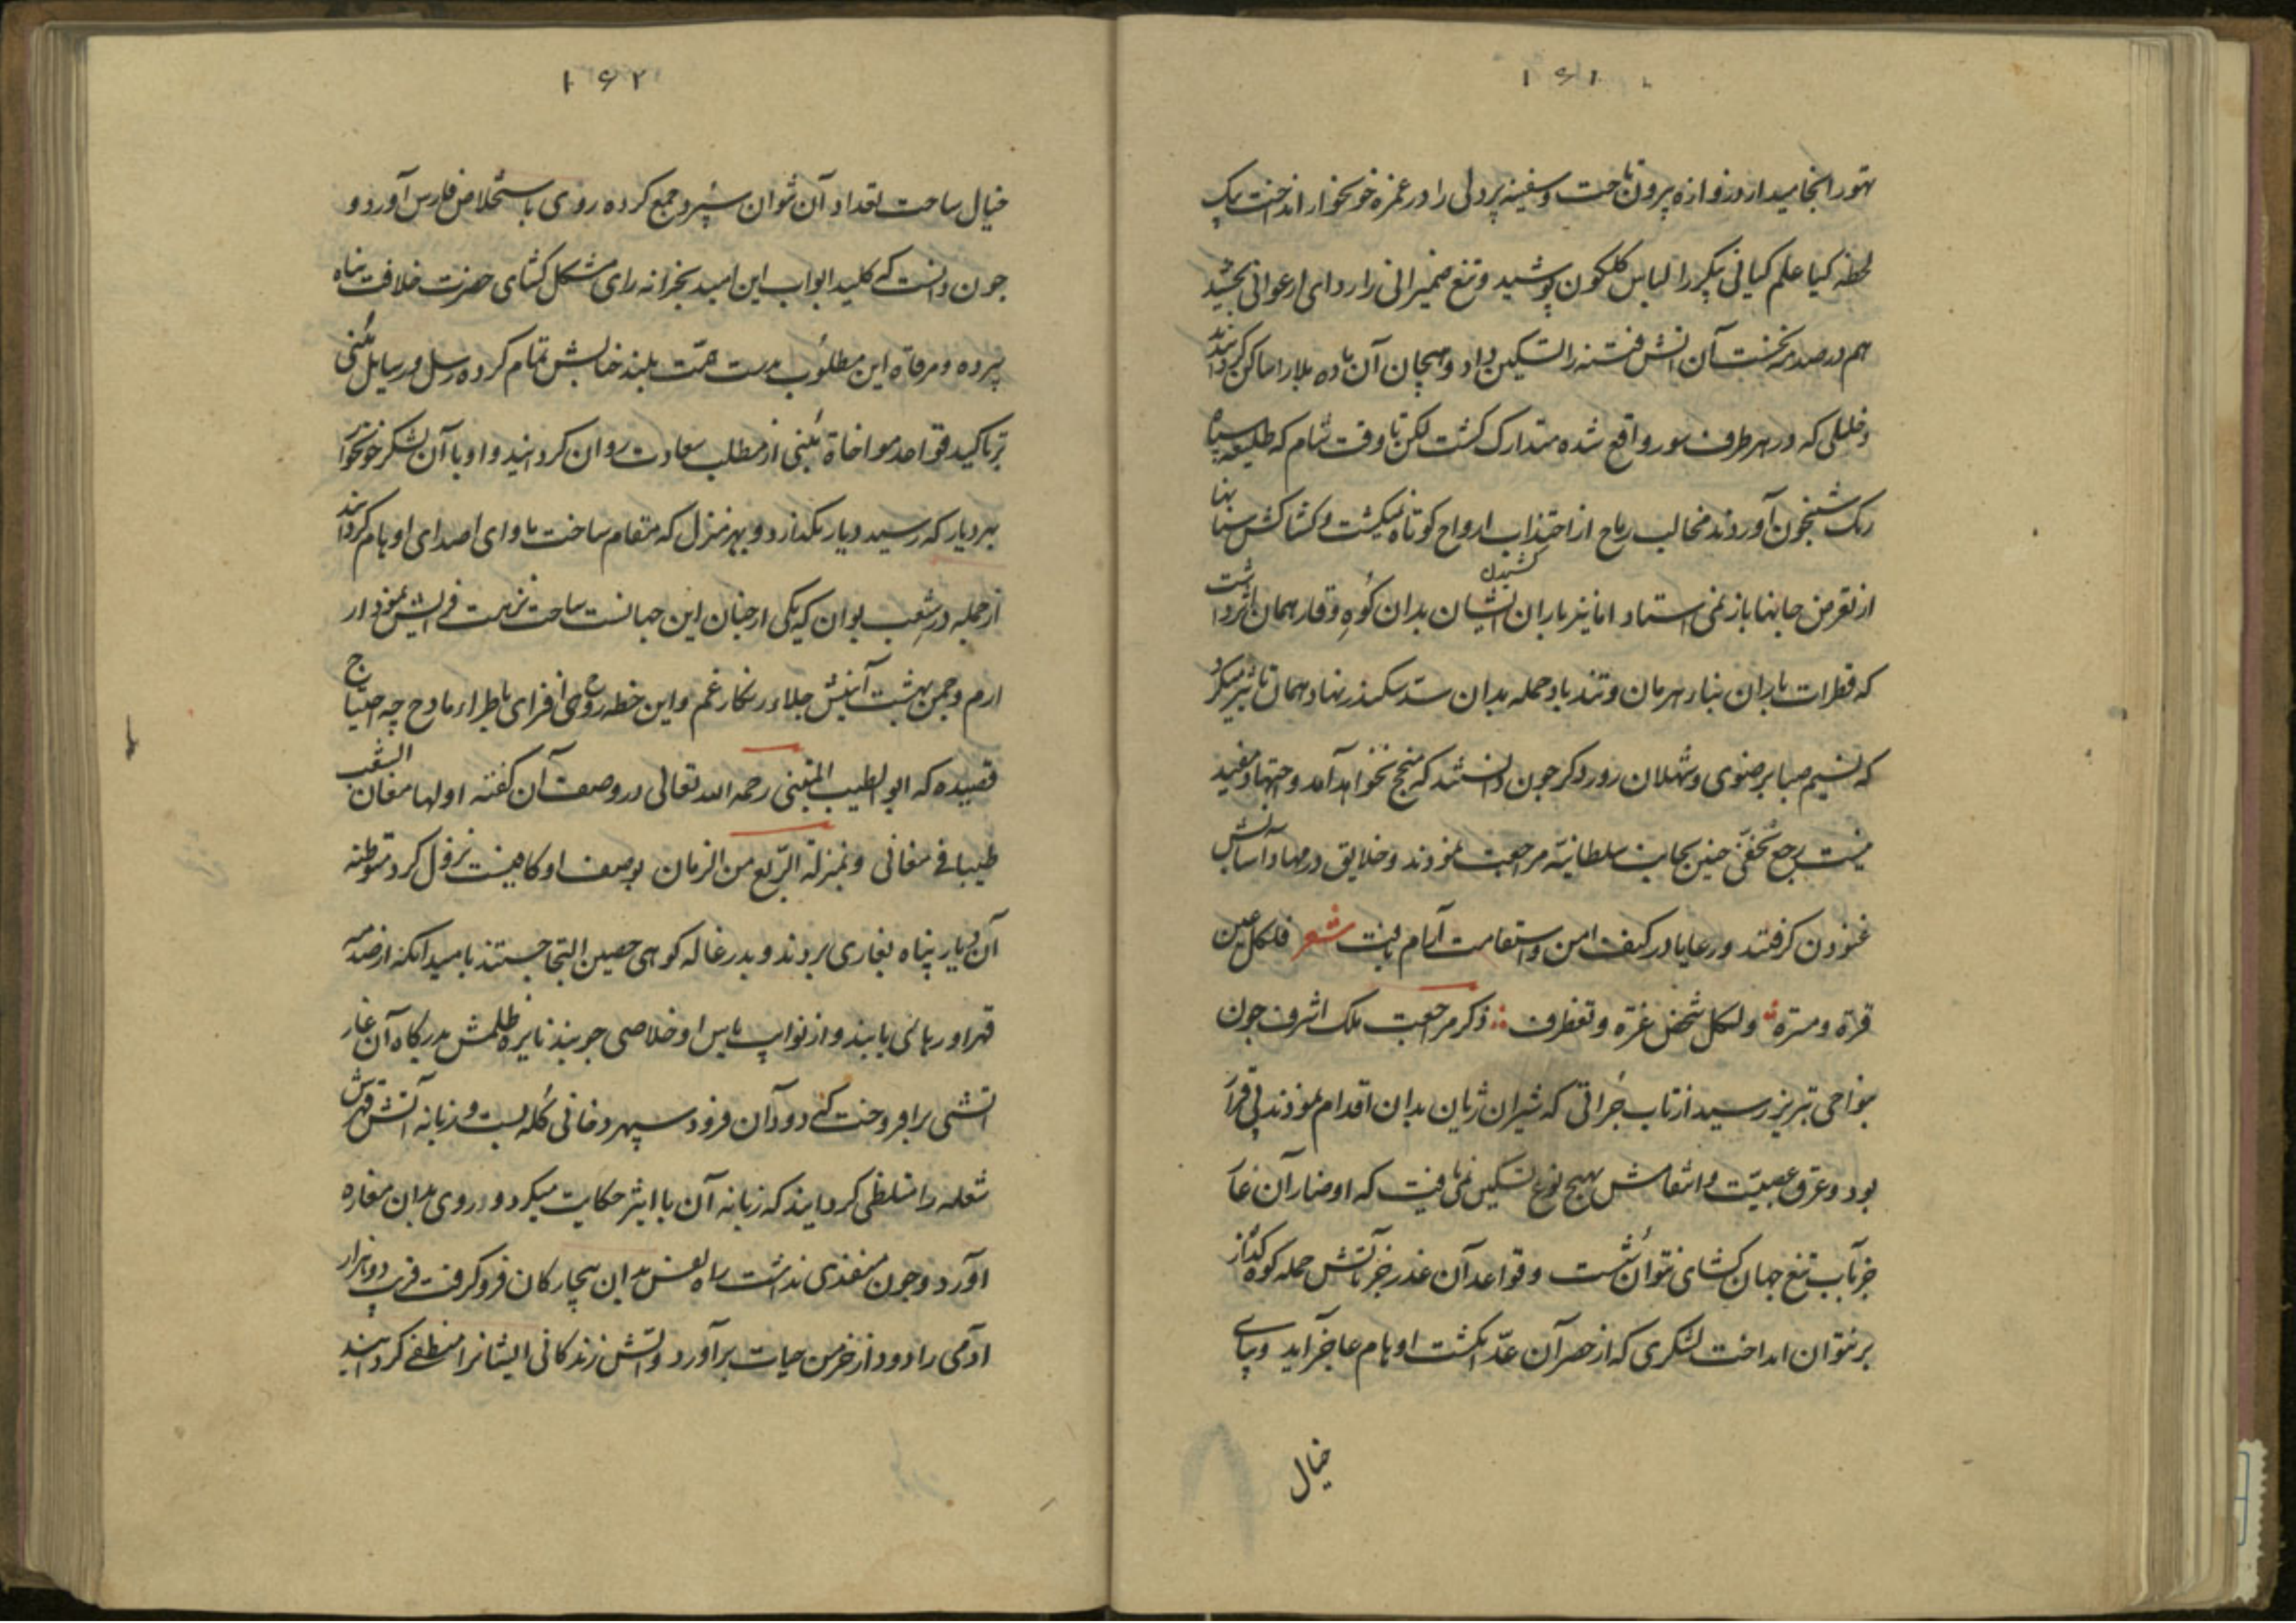 ۱۶۱
تهور انجامید از دروازه بیرون تاخت و سفینه پردلی را در غمزه خونخوار انداخت یک
لحظه کیا علم کیانی پیکر را لباس کلکون پوشید و تیغ ضمیرانی را ردای ارغوانی بخشید
هم در صدمه نخست آن آتش فتنه را تسکین داد و همچنان آن باده بلا را ساکن کردانید
و خللی که در هر طرف سور واقع شده متدارک کشت لکن تا وقت شام که طلیعه سپاه
رنک شبیخون آوردند مخالب رماح از اجتذاب ارواح کوتاه نمیکشت و کشاکش سنانها
از تعرض جانها باز نمی استاد اما تیر باران کشیدن ایشان بدان کوه وقار همان اثر داشت
که قطرات باران بنیاد هرمان و تند باد حمله بدان سد سکندر نهاد همان تاثیر میکرد
که نسیم صبا بر رضوی و شهلان رورد کر جون دانستند که منجح نخواهد آمد و اجتهاد مفید
نیست برجع بخفی حنین بجانب سلطانیه مراجعت نمودند و خلایق در مهاد آسایش
غنودن کرفتند و رعایا در کنف امن و استقامت آرام یافت شعر فلکل عین
قرة و مسره ولکل شخص غرة و تغطرف ذکر مراجعت ملک اشرف جون
بنواحی تبریز رسید از تاب جراتی که شیران ژیان بدان اقدام نمودند بی قرار
بود و عرق عصبیت و انتقامش بهیج نوع تسکین نمی یافت که اوضار آن عار
جز بآب تیغ جهان کشای نتوان شست و قواعد آن غدر جز بآتش حمله کوه کداز
بر نتوان انداخت لشکری که از حصر آن عد انکشت اوهام عاجز آید و پای
خیال
۱۶۲
خیال ساحت تعداد آن نتوان سپرد جمع کرده روی باستخلاص فارس آورد و
جون دانست که کلید ابواب این امید بخزانه رای مشکل کشای حضرت خلافت پناه
سپرده و مرقاة این مطلوب بدست همت بلند جنابش تمام کرده رسل و رسایل مبنی
بر تاکید قواعد مواخاة مبنی از مطلب سعادت روان کردانید و او با آن لشکر خونخوار
بهر دیار که رسید دیار نکذارد و بهر منزل که مقام ساخت ماوای اصدای اوهام کردانید
از جمله در شعب بوان که یکی از جنان این جهانست ساحت نزهت فزایش نمودار
ارم و جمن بهشت آئینش جلاء زنکار غم و این خطه روح افزای باطراء مادح چه احتیاج
قصیده که ابو الطیب المتنبی رحمه الله تعالی در وصف آن کفته اولها مغان الشعب
طیبا فی مغانی و بمنزلة الربیع من الزمان بوصف او کاهیست نزول کرد متوطنه
آن دیار پناه بغاری بردند و بدر غاله کوهی حصین التجا جستند بامید انکه از صدمه
قهر او رهائی یابند و از نوایب باس او خلاصی جویند نایره ظلمش بدرکاه آن غار
اتشی برافروخت که دود آن فرود سپهر دخانی کله بست و زبانه آتش قهرش
شعله را متلظی کردانید که زبانه آن با اثیر حکایت میکرد و روی بدان مغاره
آورد و جون منفذی نداشت راه نفس بدان بیچارکان فرو کرفت قریب دو هزار
آدمی را دود از خرمن حیات برآورد و آتش زندکانی ایشانرا منطفی کردانید